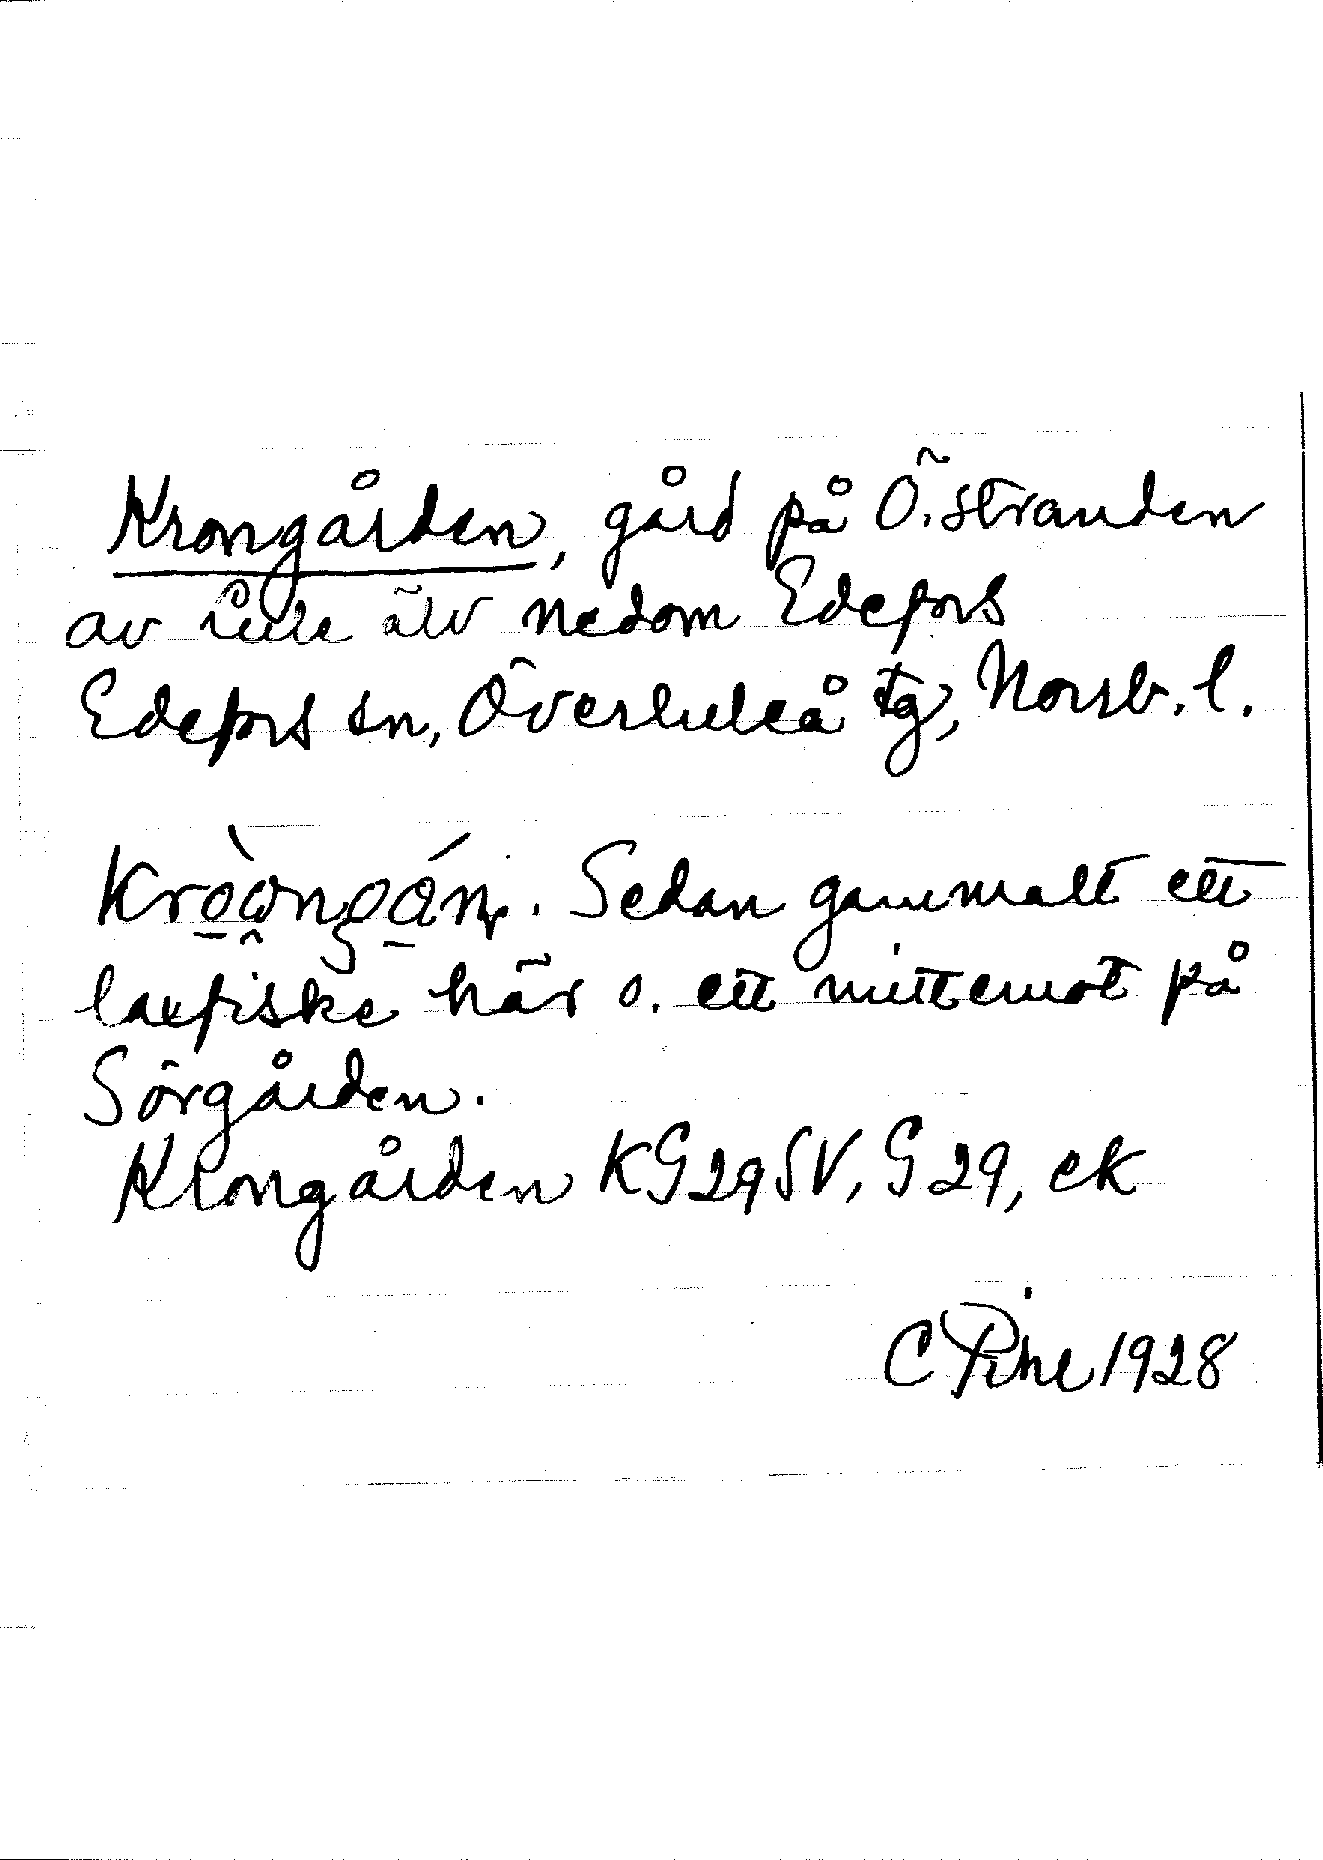 Krongården, gård på Ö. stranden
av Lule älv nedom Edefors
Edefors sn, Överluleå tg, Norrb. l.
Sedan gammalt ett
laxfiske här o. ett mittemot på
Sörgården.
Krongården KG29SV, G29, ek
C Pihl 1928